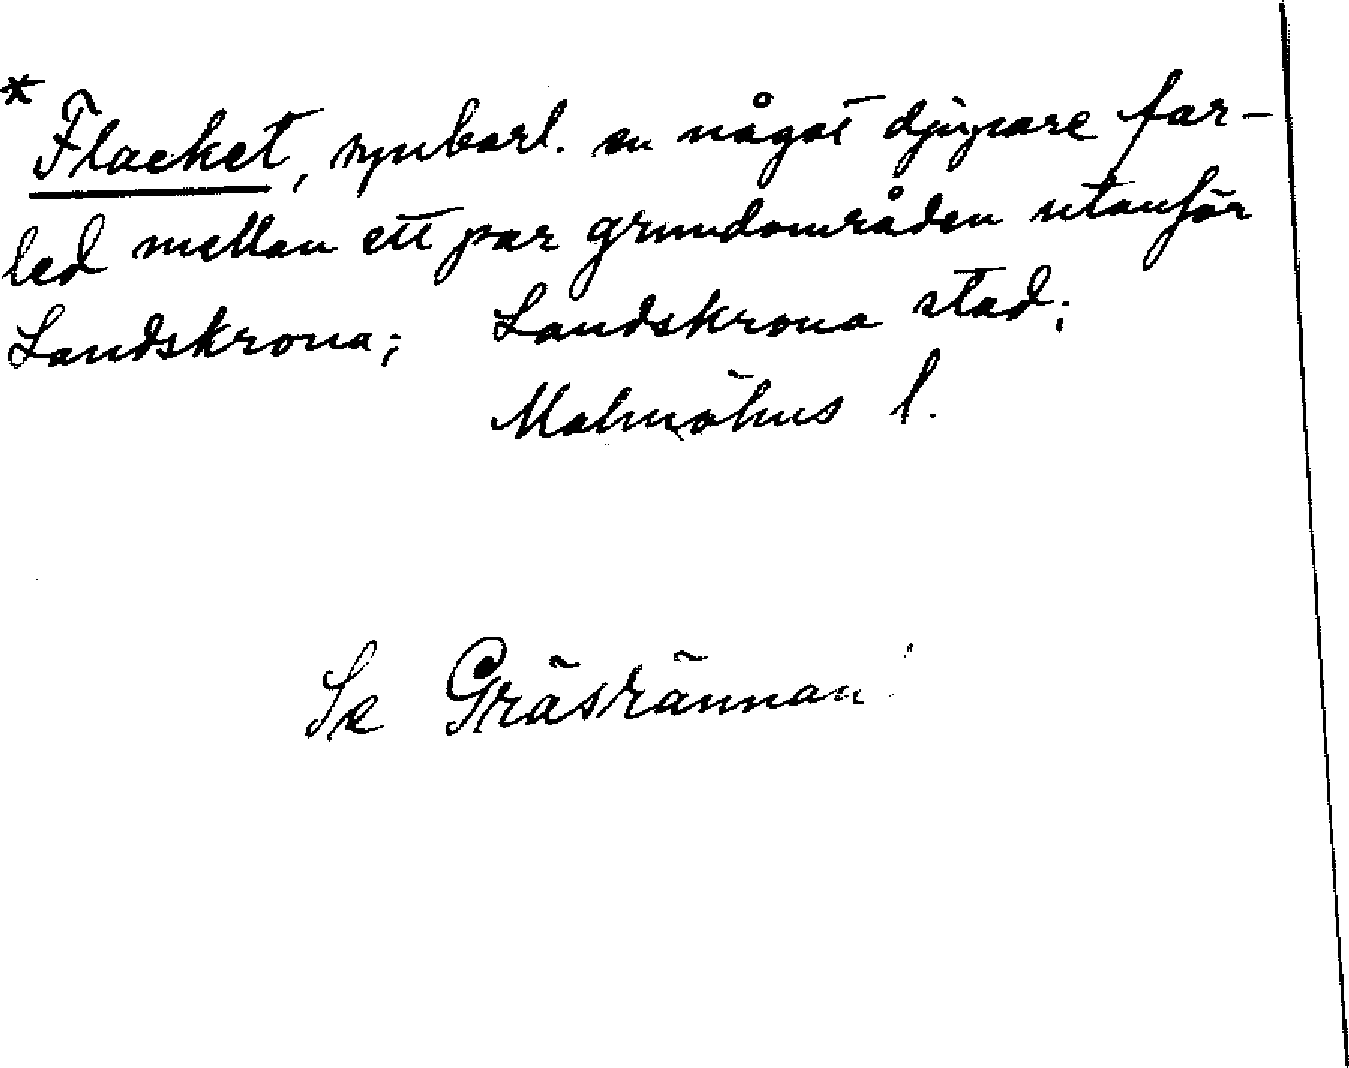 * Flacket, synbarl. en något djupare far-
led mellan ett par grundområden utanför
Landskrona; Landskrona stad;
Malmöhus l.
Se Gräsrännan